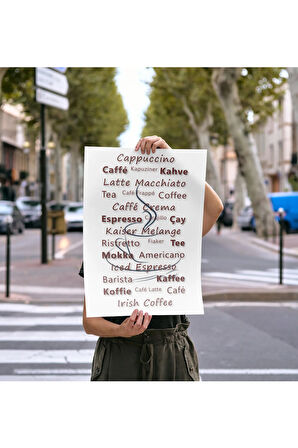 Cappuccino
Caffé Kapuziner Kahve
Latte Macchiato
Tea Café Frappé Coffee
Caffé Crema
Espresso Çay
Kaiser Melange
Ristretto Fiaker Tee
Mokka Americano
Iced Espresso
Barista Kaffee
Koffie Café Latte Café
Irish Coffee